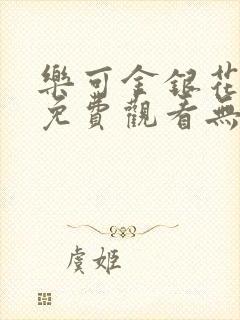 樂可金銀花
免費觀看無
虞姬